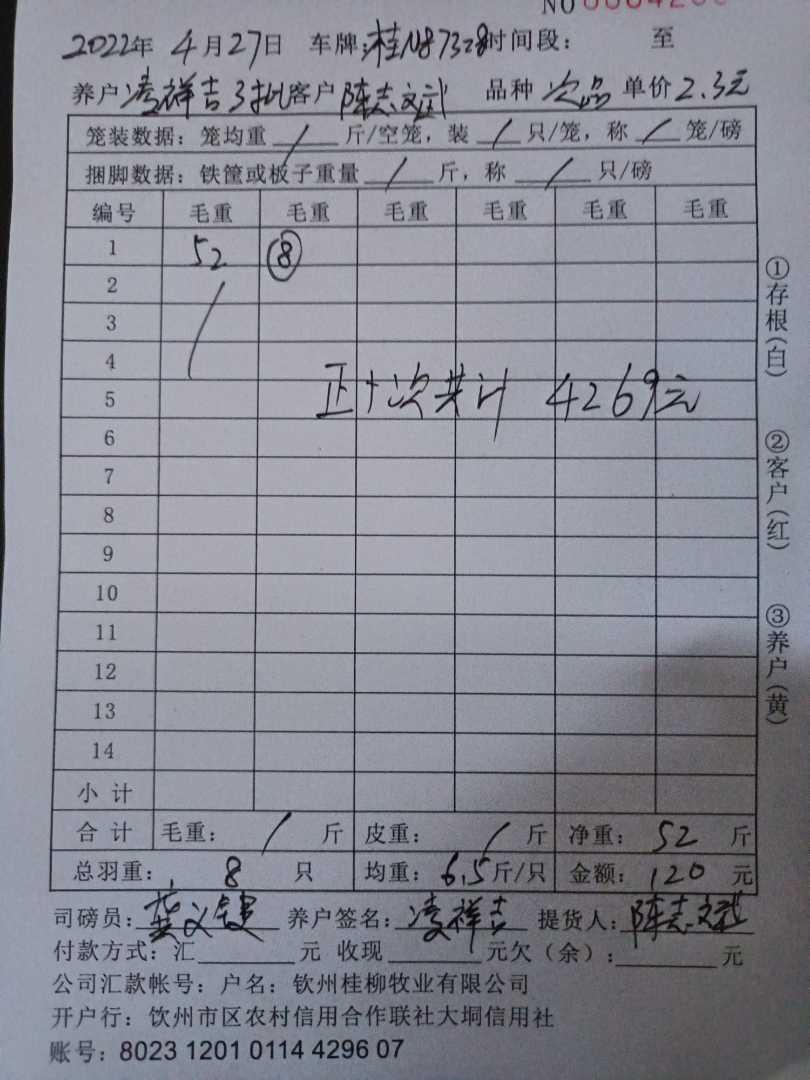 NO
2022年 4月27日 车牌:桂N87328时间段: 至
养户凌祥吉3批客户陈志斌 品种 次品 单价2.3元
笼装数据:笼均重 / 斤/空笼,装 / 只/笼,称 / 笼/磅
捆脚数据:铁筐或板子重量 / 斤,称 / 只/磅
编号 毛重 毛重 毛重 毛重 毛重 毛重
1 52 ⑧
2 /
3
4
5 正+次共计 4269元
6
7
8
9
10
11
12
13
14
小计
合计 毛重: / 斤 皮重: / 斤 净重: 52 斤
总羽重: 8 只 均重: 6.5斤/只 金额: 120 元
司磅员: 养户签名:凌祥吉 提货人:陈志斌
付款方式:汇 元 收现 元欠(余): 元
公司汇款帐号:户名:钦州桂柳牧业有限公司
开户行:钦州市区农村信用合作联社大垌信用社
账号:8023 1201 0114 4296 07
①存根(白)
②客户(红)
③养户(黄)